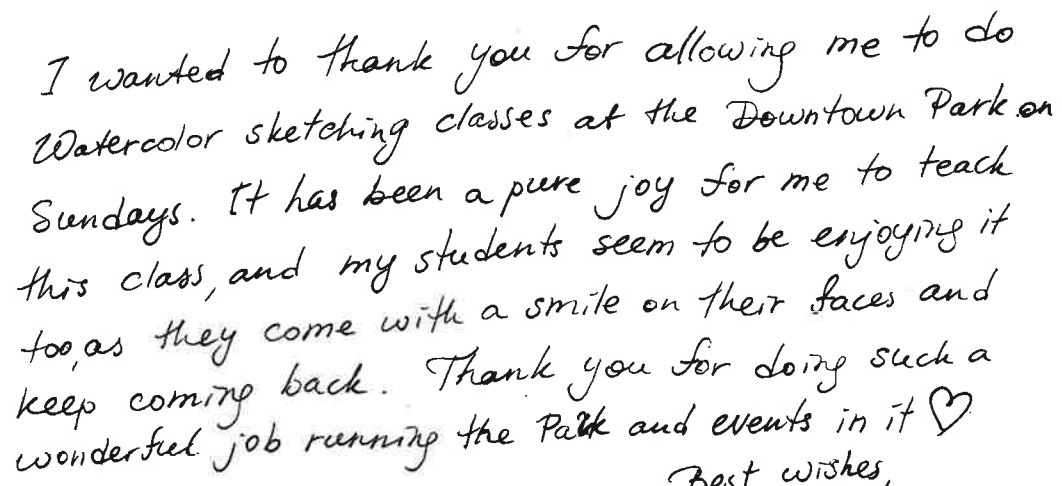 I wanted to thank you for allowing me to do
Watercolor sketching classes at the Downtown Park on
Sundays. It has been a pure joy for me to teach
this class, and my students seem to be enjoying it
too, as they come with a smile on their faces and
keep coming back. Thank you for doing such a
wonderful job running the Park and events in it ♡
Best wishes,